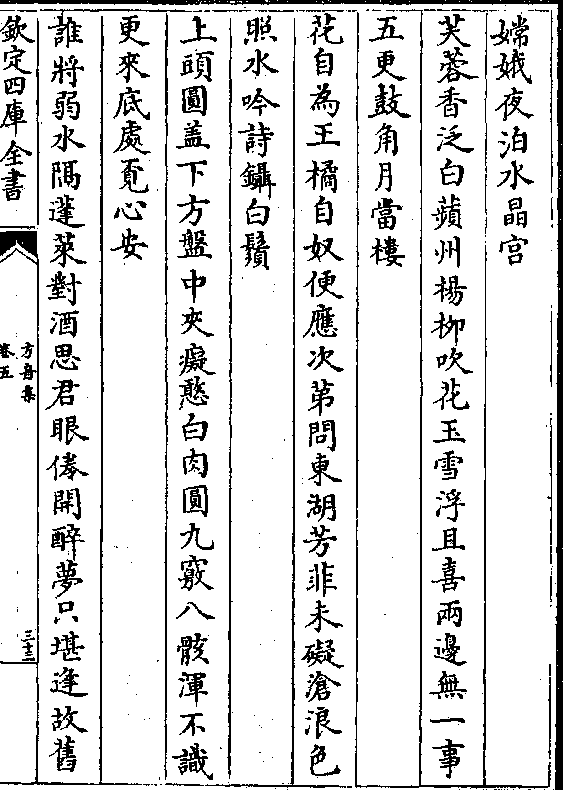 嫦娥夜泊水晶宫
芙蓉香泛白蘋州楊栁吹花玉雪浮且喜兩邊無一事
五更鼓角月當樓
花自為王橘自奴便應次第問東湖芳菲未礙滄浪色
照水吟詩鑷白鬚
上頭圓盖下方盤中夾癡憨白肉圓九竅八骸渾不識
更來底處覔心安
誰將弱水隔蓬萊對酒思君眼倦開醉夢只堪逢故舊
欽定四庫全書
方舟集
卷五
三十三